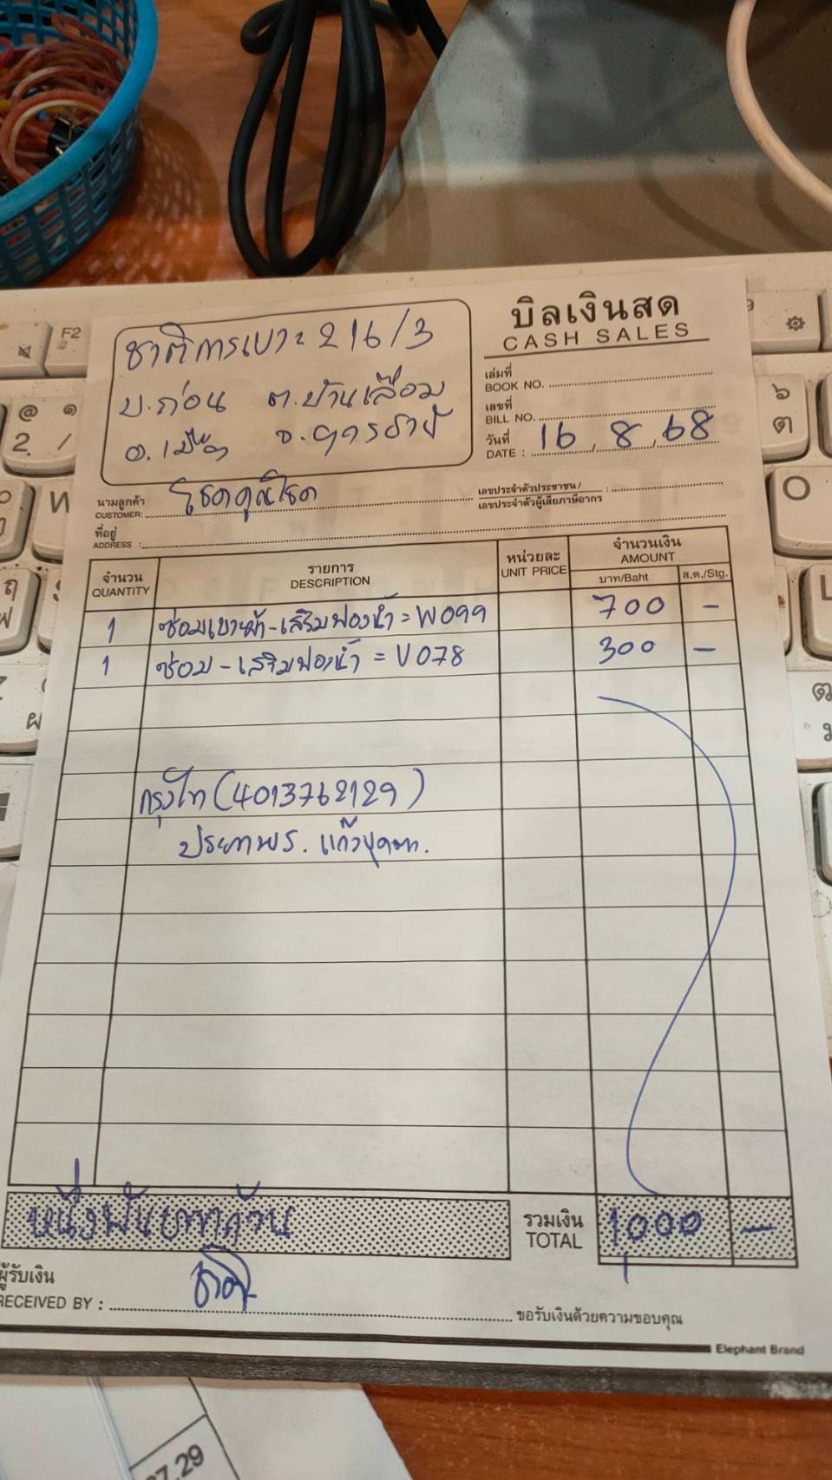 F2
บิลเงินสด
CASH SALES
ชาติการเบาะ 216/3
บ.ก่อน ต.บ้านเลื่อม
อ.เมือง จ.อุดรธานี
เล่มที่
BOOK NO.
เลขที่
BILL NO.
วันที่
DATE : 16 , 8 , 68
นามลูกค้า
CUSTOMER: โชคคูณโชค
เลขประจำตัวประชาชน /
เลขประจำตัวผู้เสียภาษีอากร :
ที่อยู่
ADDRESS :
จำนวน
QUANTITY
รายการ
DESCRIPTION
หน่วยละ
UNIT PRICE
จำนวนเงิน
AMOUNT
บาท/Baht ส.ต./Stg.
1 ซ่อมเบาะผ้า-เสริมฟองน้ำ = W099 700 -
1 ซ่อม - เสริมฟองน้ำ = V078 300 -
กรุงไทย (4013762129)
แก้ว
หนึ่งพันบาทถ้วน
รวมเงิน
TOTAL
1000 -
ผู้รับเงิน
RECEIVED BY : ชาติ
ขอรับเงินด้วยความขอบคุณ
Elephant Brand
07.29